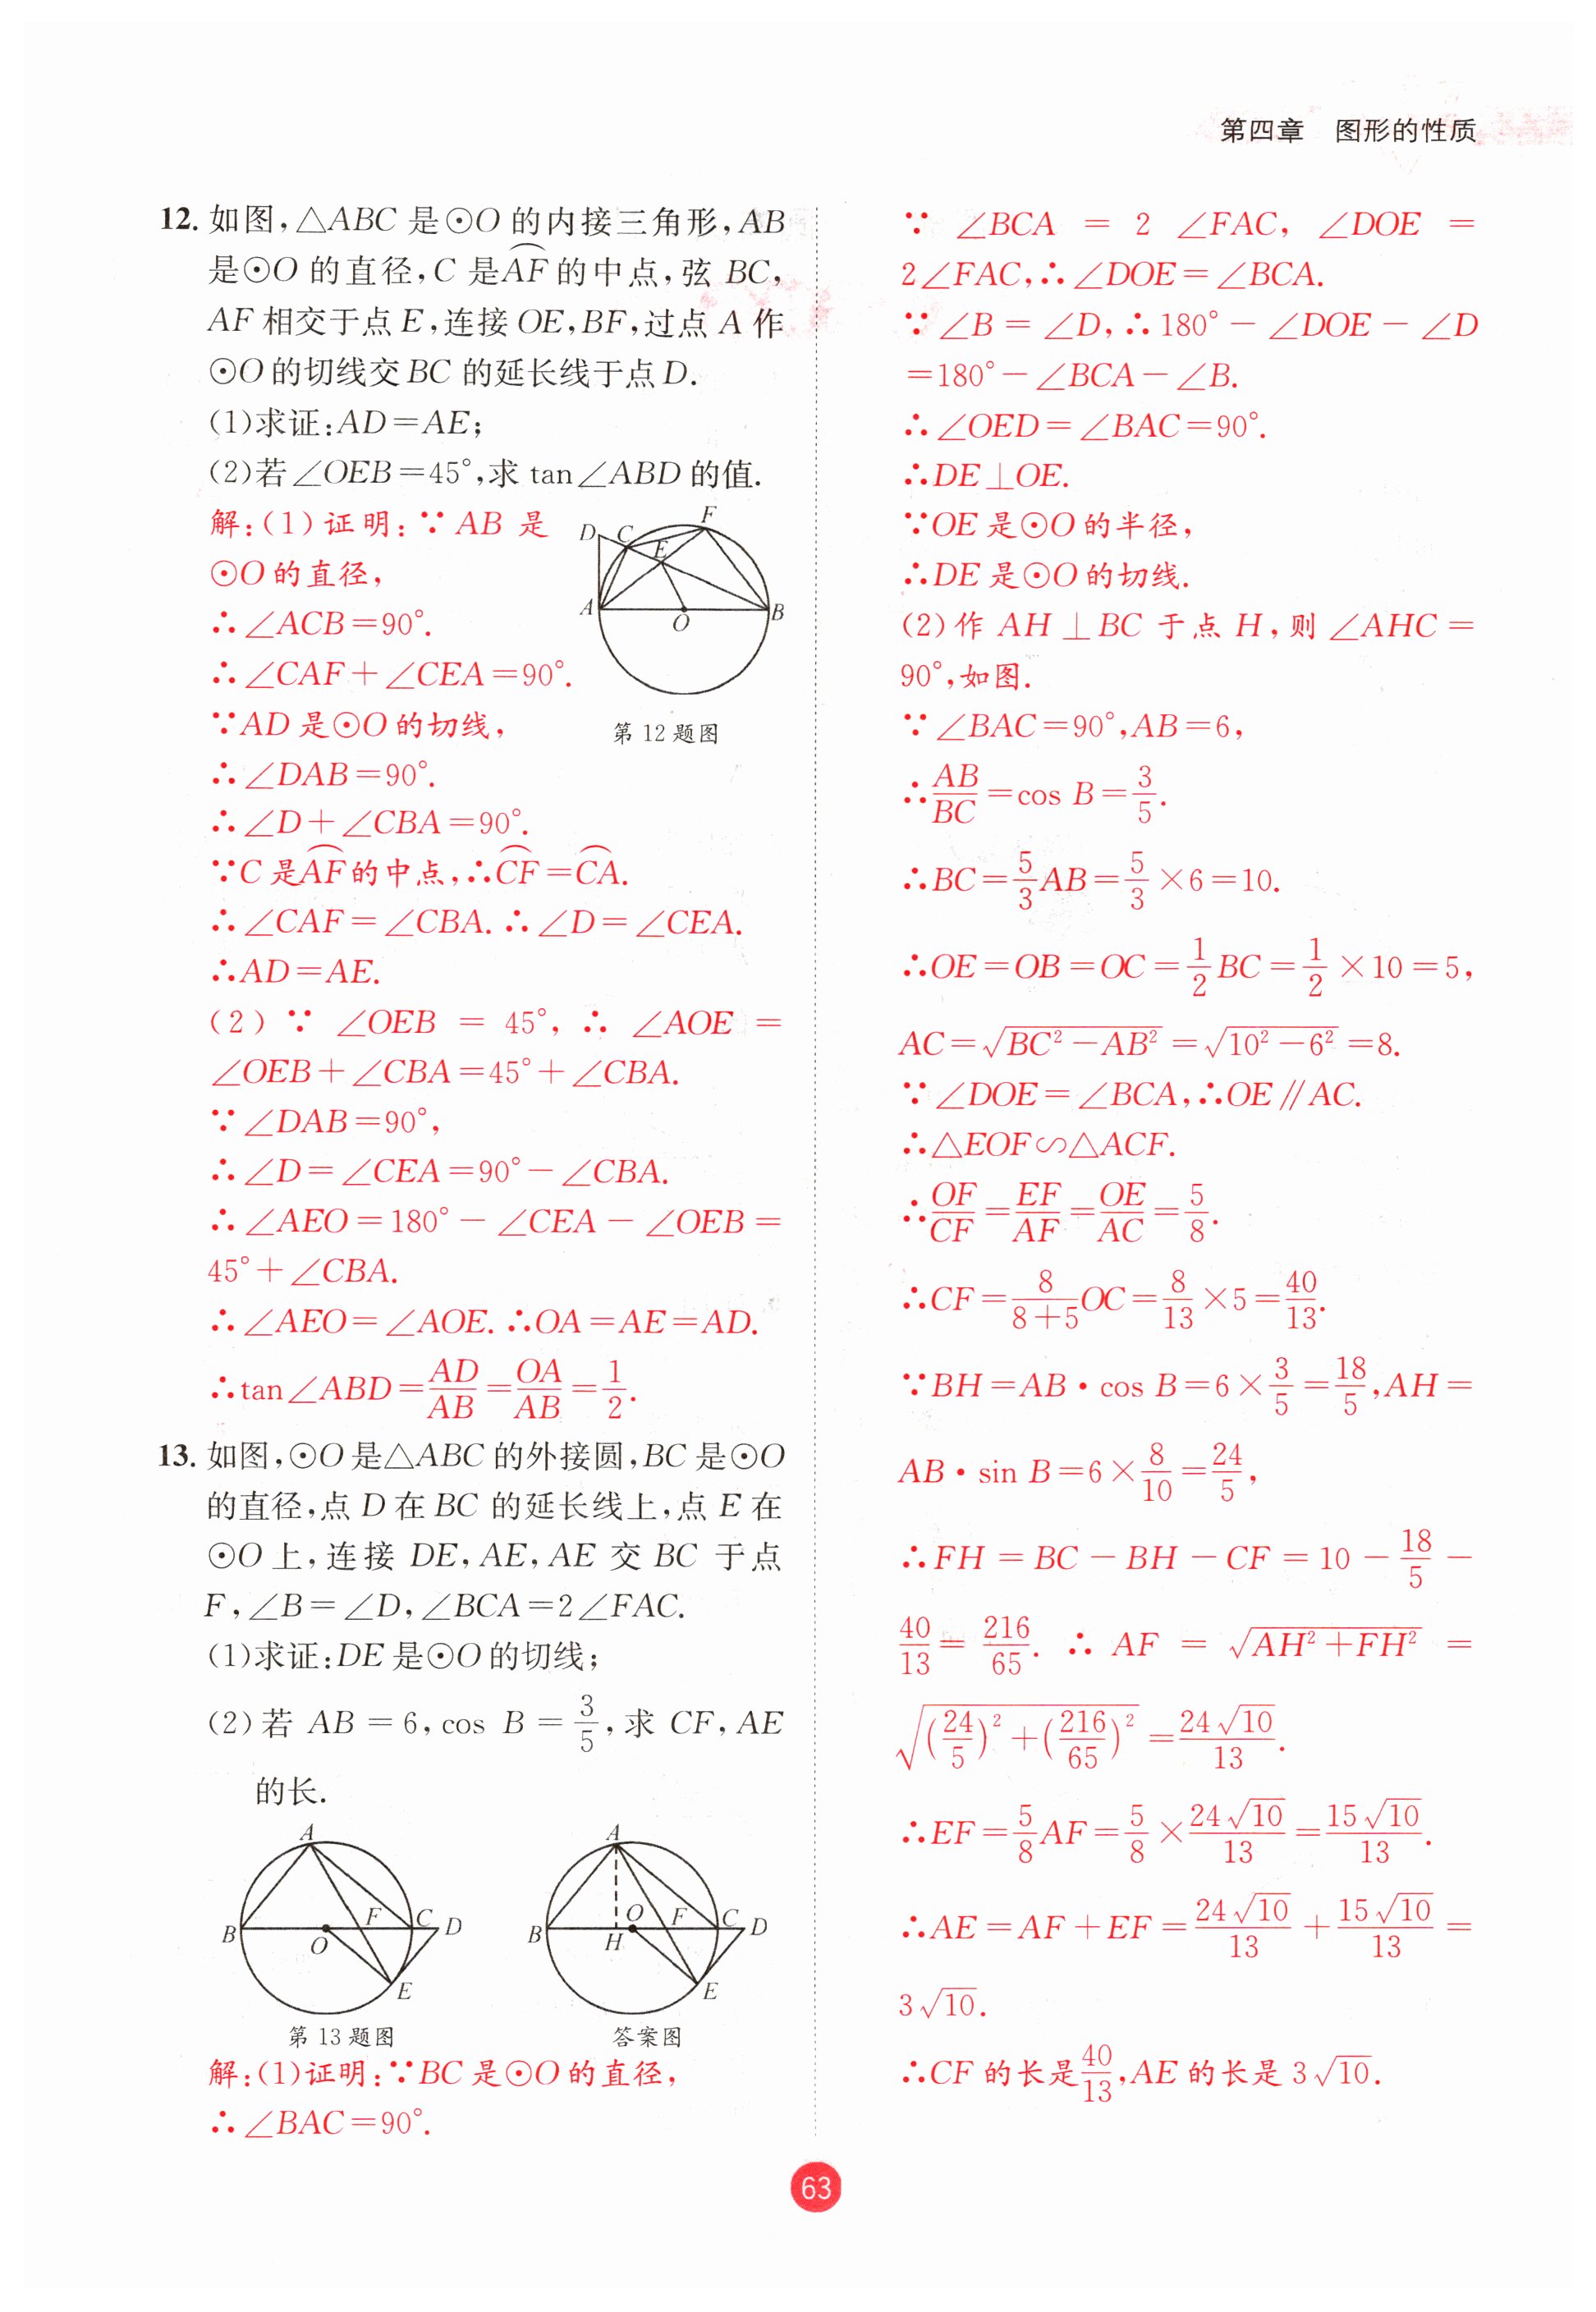 第四章 图形的性质
12. 如图,△ABC 是⊙O 的内接三角形,AB
是⊙O 的直径,C 是$\overset{\frown}{AF}$的中点,弦 BC,
AF 相交于点 E,连接 OE,BF,过点 A 作
⊙O 的切线交 BC 的延长线于点 D.
(1)求证:AD=AE;
(2)若∠OEB=45°,求 tan∠ABD 的值.
解:(1)证明:∵AB 是
⊙O 的直径,
∴∠ACB=90°.
∴∠CAF+∠CEA=90°.
∵AD 是⊙O 的切线,
∴∠DAB=90°.
∴∠D+∠CBA=90°.
D C F
E
A O B
第 12 题图
∵C 是$\overset{\frown}{AF}$的中点,∴$\overset{\frown}{CF}$=$\overset{\frown}{CA}$.
∴∠CAF=∠CBA.∴∠D=∠CEA.
∴AD=AE.
(2)∵∠OEB=45°,∴∠AOE=
∠OEB+∠CBA=45°+∠CBA.
∵∠DAB=90°,
∴∠D=∠CEA=90°-∠CBA.
∴∠AEO=180°-∠CEA-∠OEB=
45°+∠CBA.
∴∠AEO=∠AOE.∴OA=AE=AD.
∴tan∠ABD=$\frac{AD}{AB}$=$\frac{OA}{AB}$=$\frac{1}{2}$.
13. 如图,⊙O 是△ABC 的外接圆,BC 是⊙O
的直径,点 D 在 BC 的延长线上,点 E 在
⊙O 上,连接 DE,AE,AE 交 BC 于点
F,∠B=∠D,∠BCA=2∠FAC.
(1)求证:DE 是⊙O 的切线;
(2)若 AB=6,cos B=$\frac{3}{5}$,求 CF,AE
的长.
A
B O F C D
E
第 13 题图
A
B H O F C D
E
答案图
解:(1)证明:∵BC 是⊙O 的直径,
∴∠BAC=90°.
∵∠BCA=2∠FAC,∠DOE=
2∠FAC,∴∠DOE=∠BCA.
∵∠B=∠D,∴180°-∠DOE-∠D
=180°-∠BCA-∠B.
∴∠OED=∠BAC=90°.
∴DE⊥OE.
∵OE 是⊙O 的半径,
∴DE 是⊙O 的切线.
(2)作 AH⊥BC 于点 H,则∠AHC=
90°,如图.
∵∠BAC=90°,AB=6,
∴$\frac{AB}{BC}$=cos B=$\frac{3}{5}$.
∴BC=$\frac{5}{3}$AB=$\frac{5}{3}$×6=10.
∴OE=OB=OC=$\frac{1}{2}$BC=$\frac{1}{2}$×10=5,
AC=$\sqrt{BC^2-AB^2}$=$\sqrt{10^2-6^2}$=8.
∵∠DOE=∠BCA,∴OE∥AC.
∴△EOF∽△ACF.
∴$\frac{OF}{CF}$=$\frac{EF}{AF}$=$\frac{OE}{AC}$=$\frac{5}{8}$.
∴CF=$\frac{8}{8+5}$OC=$\frac{8}{13}$×5=$\frac{40}{13}$.
∵BH=AB·cos B=6×$\frac{3}{5}$=$\frac{18}{5}$,AH=
AB·sin B=6×$\frac{8}{10}$=$\frac{24}{5}$,
∴FH=BC-BH-CF=10-$\frac{18}{5}$-
$\frac{40}{13}$=$\frac{216}{65}$.∴AF=$\sqrt{AH^2+FH^2}$=
$\sqrt{(\frac{24}{5})^2+(\frac{216}{65})^2}$=$\frac{24\sqrt{10}}{13}$.
∴EF=$\frac{5}{8}$AF=$\frac{5}{8}$×$\frac{24\sqrt{10}}{13}$=$\frac{15\sqrt{10}}{13}$.
∴AE=AF+EF=$\frac{24\sqrt{10}}{13}$+$\frac{15\sqrt{10}}{13}$=
3$\sqrt{10}$.
∴CF 的长是$\frac{40}{13}$,AE 的长是 3$\sqrt{10}$.
63